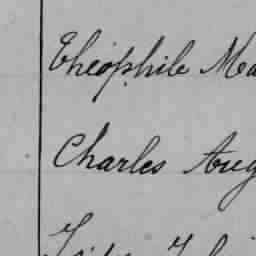 Théophile Ma
Charles Aug